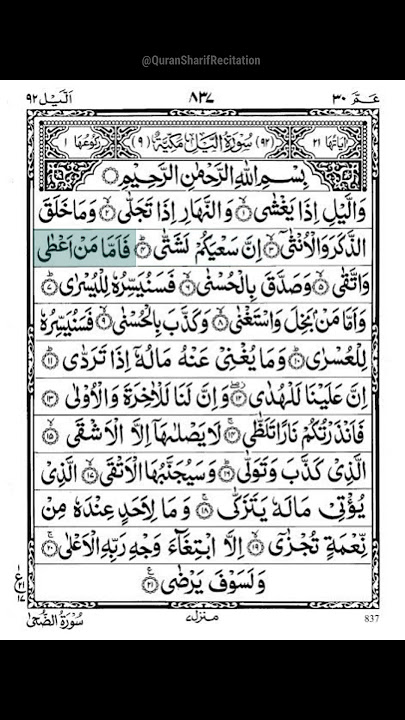 @QuranSharifRecitation
عم ٣٠
٨٣٧
اليل ٩٢
اٰيَاتُهَا ٢١
(٩٢) سُوْرَةُ الَّيْلِ مَكِّيَّةٌ (٩)
رُكُوْعُهَا ١
بِسْمِ اللّٰهِ الرَّحْمٰنِ الرَّحِيْمِ
وَالَّيْلِ اِذَا يَغْشٰى ۙ﴿١﴾ وَالنَّهَارِ اِذَا تَجَلّٰى ۙ﴿٢﴾ وَمَا خَلَقَ
الذَّكَرَ وَالْاُنْثٰٓى ۙ﴿٣﴾ اِنَّ سَعْيَكُمْ لَشَتّٰى ؕ﴿٤﴾ فَاَمَّا مَنْ اَعْطٰى
وَاتَّقٰى ۙ﴿٥﴾ وَصَدَّقَ بِالْحُسْنٰى ۙ﴿٦﴾ فَسَنُيَسِّرُهٗ لِلْيُسْرٰى ؕ﴿٧﴾
وَاَمَّا مَنْۢ بَخِلَ وَاسْتَغْنٰى ۙ﴿٨﴾ وَكَذَّبَ بِالْحُسْنٰى ۙ﴿٩﴾ فَسَنُيَسِّرُهٗ
لِلْعُسْرٰى ؕ﴿١٠﴾ وَمَا يُغْنِيْ عَنْهُ مَالُهٗٓ اِذَا تَرَدّٰى ؕ﴿١١﴾
اِنَّ عَلَيْنَا لَلْهُدٰى ۖ﴿١٢﴾ وَاِنَّ لَنَا لَلْاٰخِرَةَ وَالْاُوْلٰى ﴿١٣﴾
فَاَنْذَرْتُكُمْ نَارًا تَلَظّٰى ۚ﴿١٤﴾ لَا يَصْلٰىهَآ اِلَّا الْاَشْقَى ۙ﴿١٥﴾
الَّذِيْ كَذَّبَ وَتَوَلّٰى ؕ﴿١٦﴾ وَسَيُجَنَّبُهَا الْاَتْقَى ۙ﴿١٧﴾ الَّذِيْ
يُؤْتِيْ مَالَهٗ يَتَزَكّٰى ۚ﴿١٨﴾ وَمَا لِاَحَدٍ عِنْدَهٗ مِنْ
نِّعْمَةٍ تُجْزٰٓى ۙ﴿١٩﴾ اِلَّا ابْتِغَآءَ وَجْهِ رَبِّهِ الْاَعْلٰى ۚ﴿٢٠﴾
وَلَسَوْفَ يَرْضٰى ﴿٢١﴾
سُوْرَةُ الضُّحٰى
منزل ٧
837